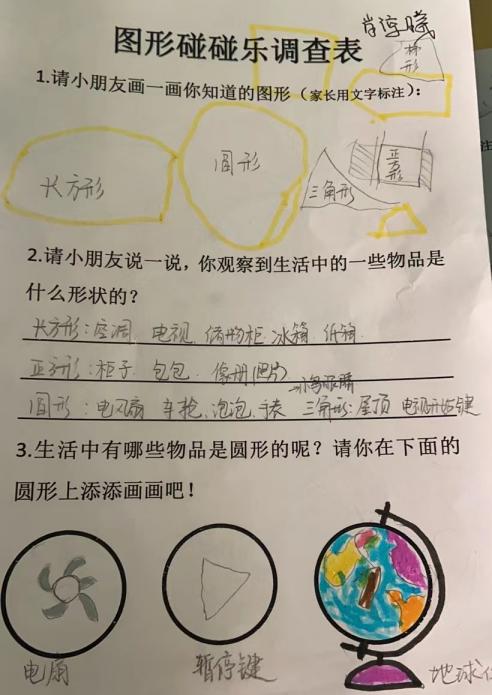 图形碰碰乐调查表
梯形
1.请小朋友画一画你知道的图形（家长用文字标注）：
长方形
圆形
三角形
正方形
2.请小朋友说一说，你观察到生活中的一些物品是
什么形状的？
长方形：空调 电视 储物柜 冰箱 纸箱
正方形：柜子 包包 像册(照片)
圆形：电风扇 车轮 泡泡 手表 三角形：屋顶 电视开始键
3.生活中有哪些物品是圆形的呢？请你在下面的
圆形上添添画画吧！
电扇
暂停键
地球仪